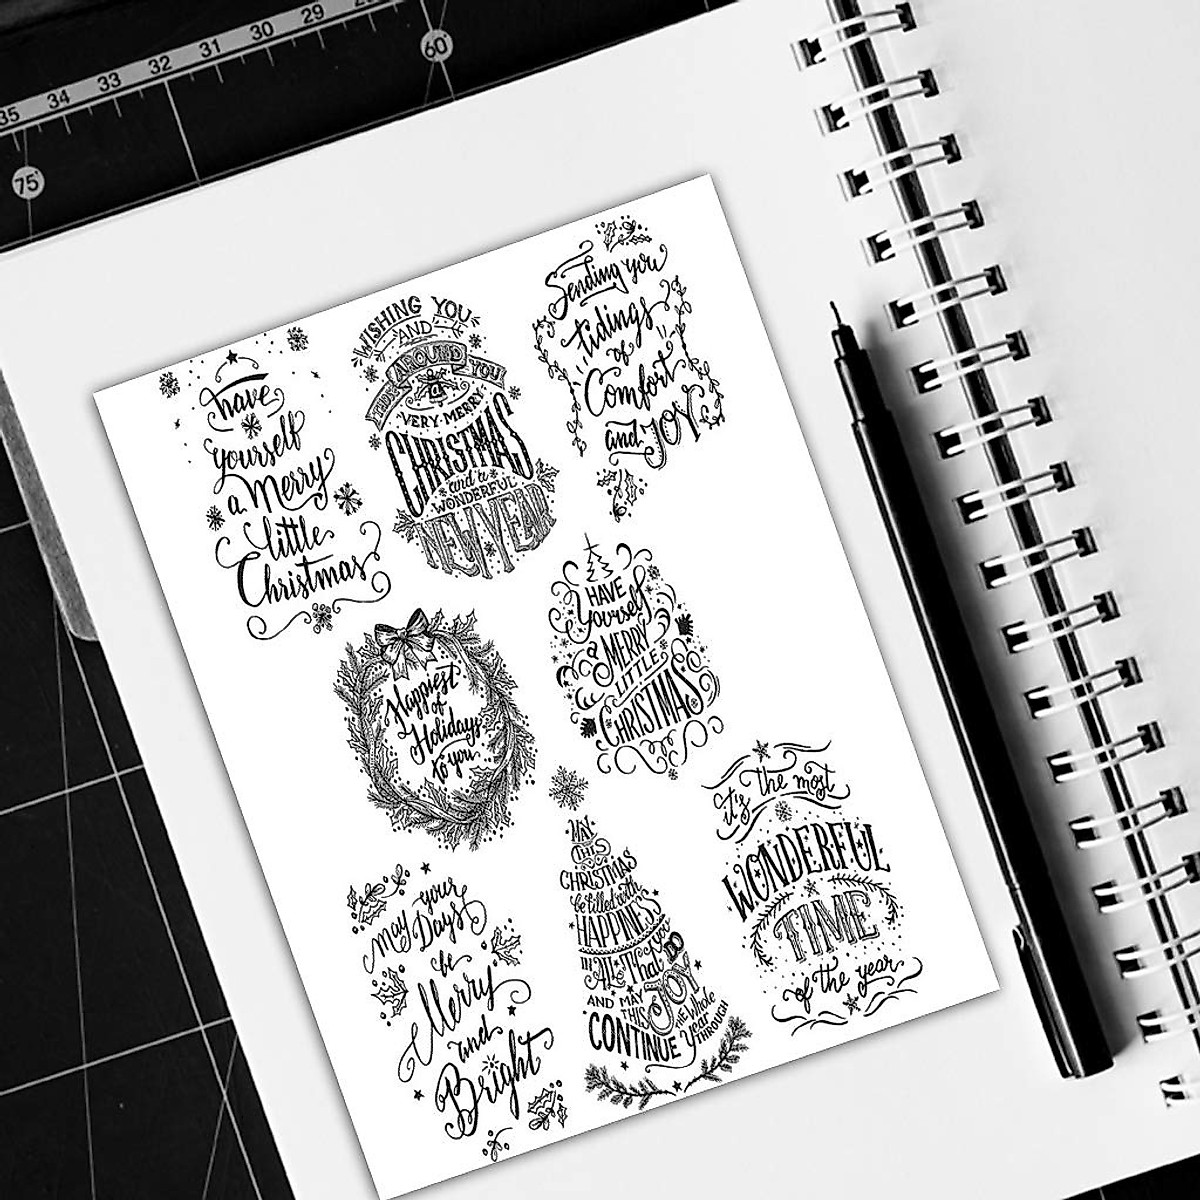 35 34 33 32 31 30 29
60°
75°
have
yourself
a Merry
little
Christmas
WISHING YOU
AND
THOSE AROUND YOU
A
VERY MERRY
CHRISTMAS
and a
WONDERFUL
NEW YEAR
Sending you
tidings
of
Comfort
and JOY
Happiest
of
Holidays
to you
HAVE
Yourself
a
MERRY
LITTLE
CHRISTMAS
may your
Days
be
Merry
and
Bright
MAY
THIS
CHRISTMAS
be filled with
HAPPINESS
IN ALL That you DO
AND MAY
THIS JOY
CONTINUE
the whole
year
THROUGH
it's the most
WONDERFUL
TIME
of the year